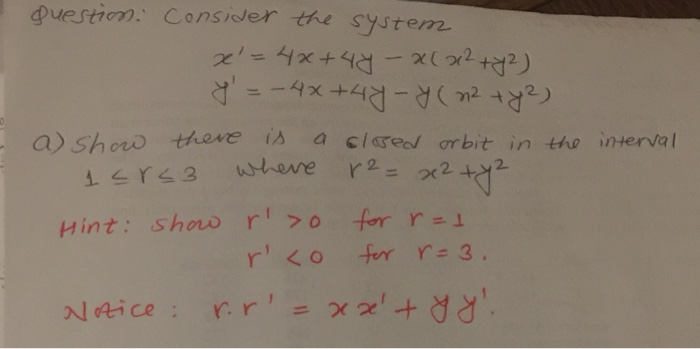 Question: Consider the system
x' = 4x + 4y - x(x² + y²)
y' = -4x + 4y - y(x² + y²)
a) Show there is a closed orbit in the interval
1 ≤ r ≤ 3 where r² = x² + y²
Hint: show r' > 0 for r = 1
r' < 0 for r = 3.
Notice: r.r' = xx' + yy'.